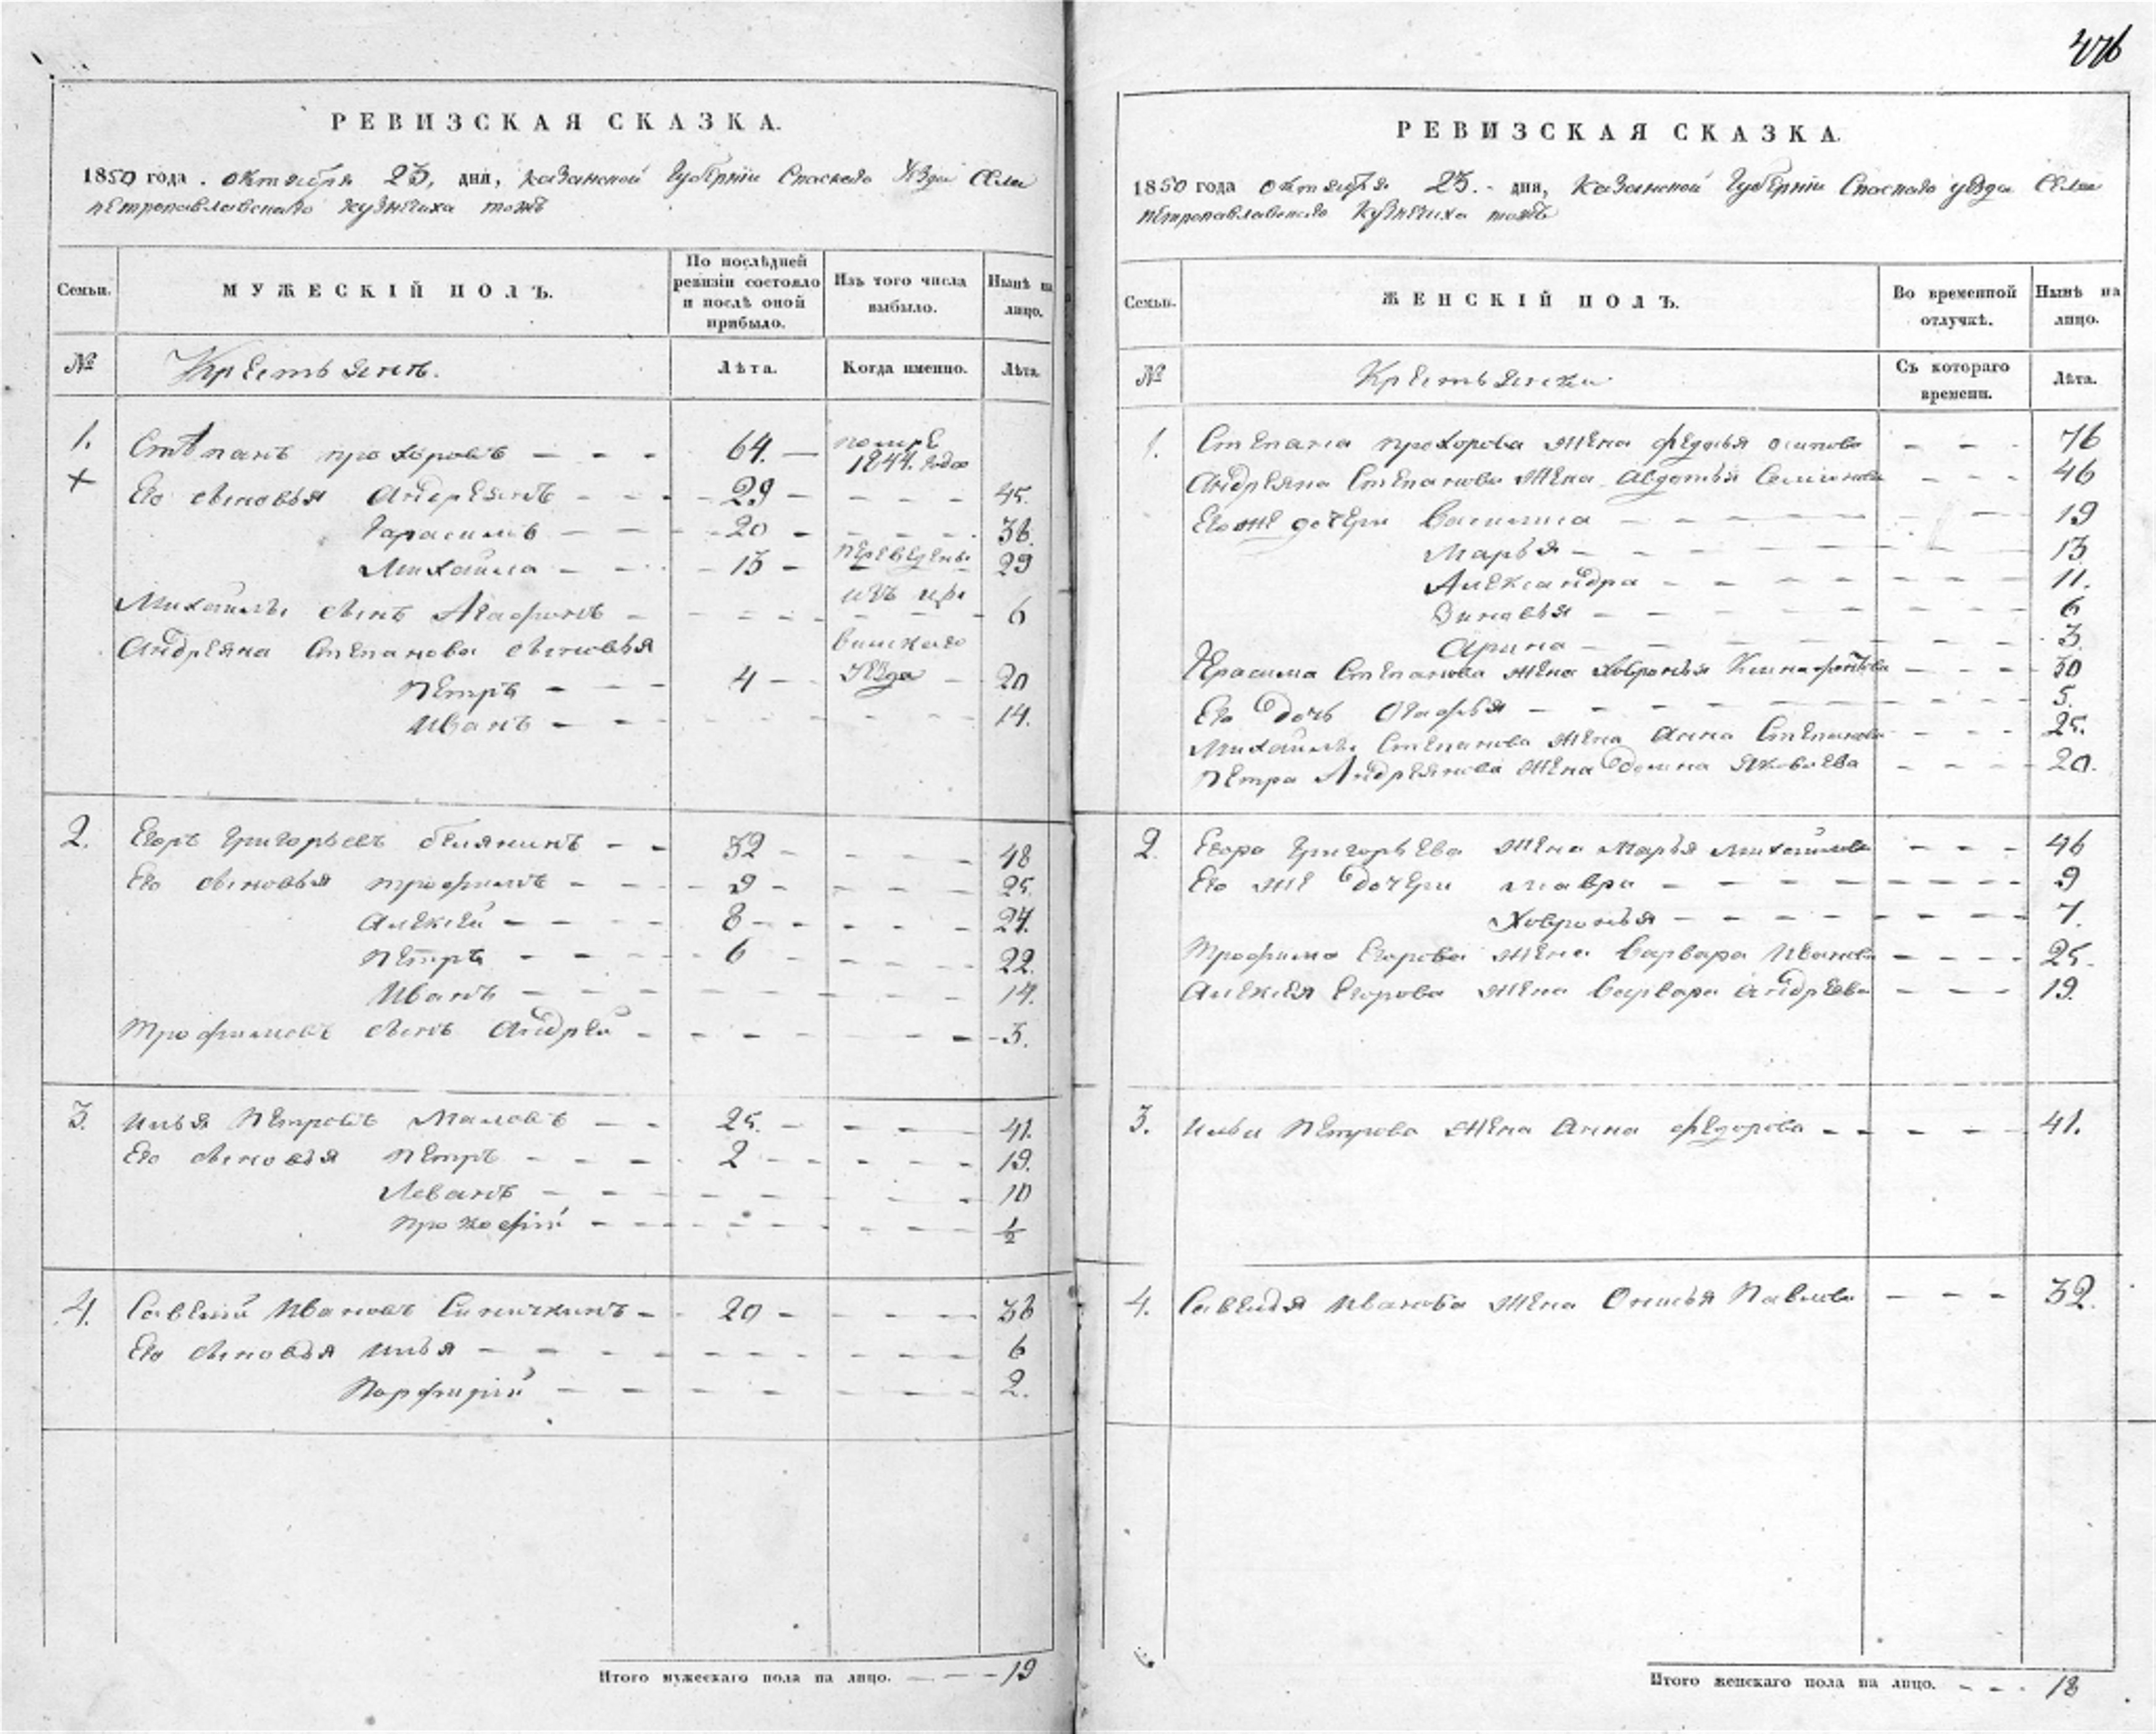 476
РЕВИЗСКАЯ СКАЗКА.
1850 года. октября 23, дня, казанской Губернiи Спаскаго Уѣзда Села
петропавловскаго кузнечиха тожъ
Семьи.
МУЖЕСКIЙ ПОЛЪ.
По послѣдней
ревизiи состояло
и послѣ оной
прибыло.
Изъ того числа
выбыло.
Нынѣ на
лицо.
№
Крестьянъ.
Лѣта.
Когда именно.
Лѣта.
1. Степанъ прохоровъ — - - 64. — помре 1844. года
+ Его сыновья Андреянъ - - - 29 - - - - - 45.
Гарасимъ - - - 20 - - - - 36.
Михайла - - - 13 - переведены 29
изъ ци
Михайлы сынъ Агафонъ - - - - - - - - 6
вильскаго
Андреяна Степанова сыновья
Петръ - - - 4 - уѣзда - 20
Иванъ - - - - - - - 14.
2. Егоръ Григорьевъ белянинъ - - 32 - - - - 48
Его сыновья трофимъ - - - 9 - - - - 25.
Алексей - - - - 8 - - - - - 24.
Петръ - - - - 6 - - - - 22.
Иванъ - - - - - - - - - - 14.
Трофимовъ сынъ Андрей - - - - - - - - 3.
3. илья Петровъ Маловъ - - 25. - - - - 41.
Его сыновья Петръ - - - 2 - - - - - 19.
Леванъ - - - - - - - - - 10
прокофiй - - - - - - - - - - 1/2
4. Савелiй Ивановъ Синичкинъ - - 20 - - - - - 36
Его сыновья илья - - - - - - - - - - 6
Порфирiй - - - - - - - - - 2.
Итого мужескаго пола на лицо. — - - 19
РЕВИЗСКАЯ СКАЗКА.
1850 года октября 23. - дня, Казанской Губернiи Спаскаго уезда Села
петропавловскаго Кузнечиха тожъ
Семьи.
ЖЕНСКIЙ ПОЛЪ.
Во временной
отлучкѣ.
Нынѣ на
лицо.
№
Крестьянки
Съ котораго
времени.
Лѣта.
1. Степана прохорова жена федосья осипова - - - 76
Андреяна Степанова жена Авдотья Семионова - - - 46
Его же дочери Василиса - - - - - - 19
Марья - - - - - - - 13
Александра - - - - - - 11.
Зиновья - - - - - - - 6
Арина - - - - - - - 3.
Герасима Степанова жена Хавронья - - - 30
Его дочь Агафья - - - - - - - - 5.
Михайлы Степанова жена Анна Степанова - - - 25.
Петра Андреянова жена домна Яковлева - - - - 20.
2. Егора Григорьева жена Марья михайлова - - - 46
Его же дочери мавра - - - - - - - - 9
Хавронья - - - - - - - - 7.
Трофима Егорова жена Варвара Иванова - - - - 25.
Алексея Егорова жена Варвара Андреева - - - 19.
3. ильи Петрова жена Анна федорова - - - - - 41.
4. Савелья иванова жена Онисья Павлова - - - 32.
Итого женскаго пола на лицо. - - - 18